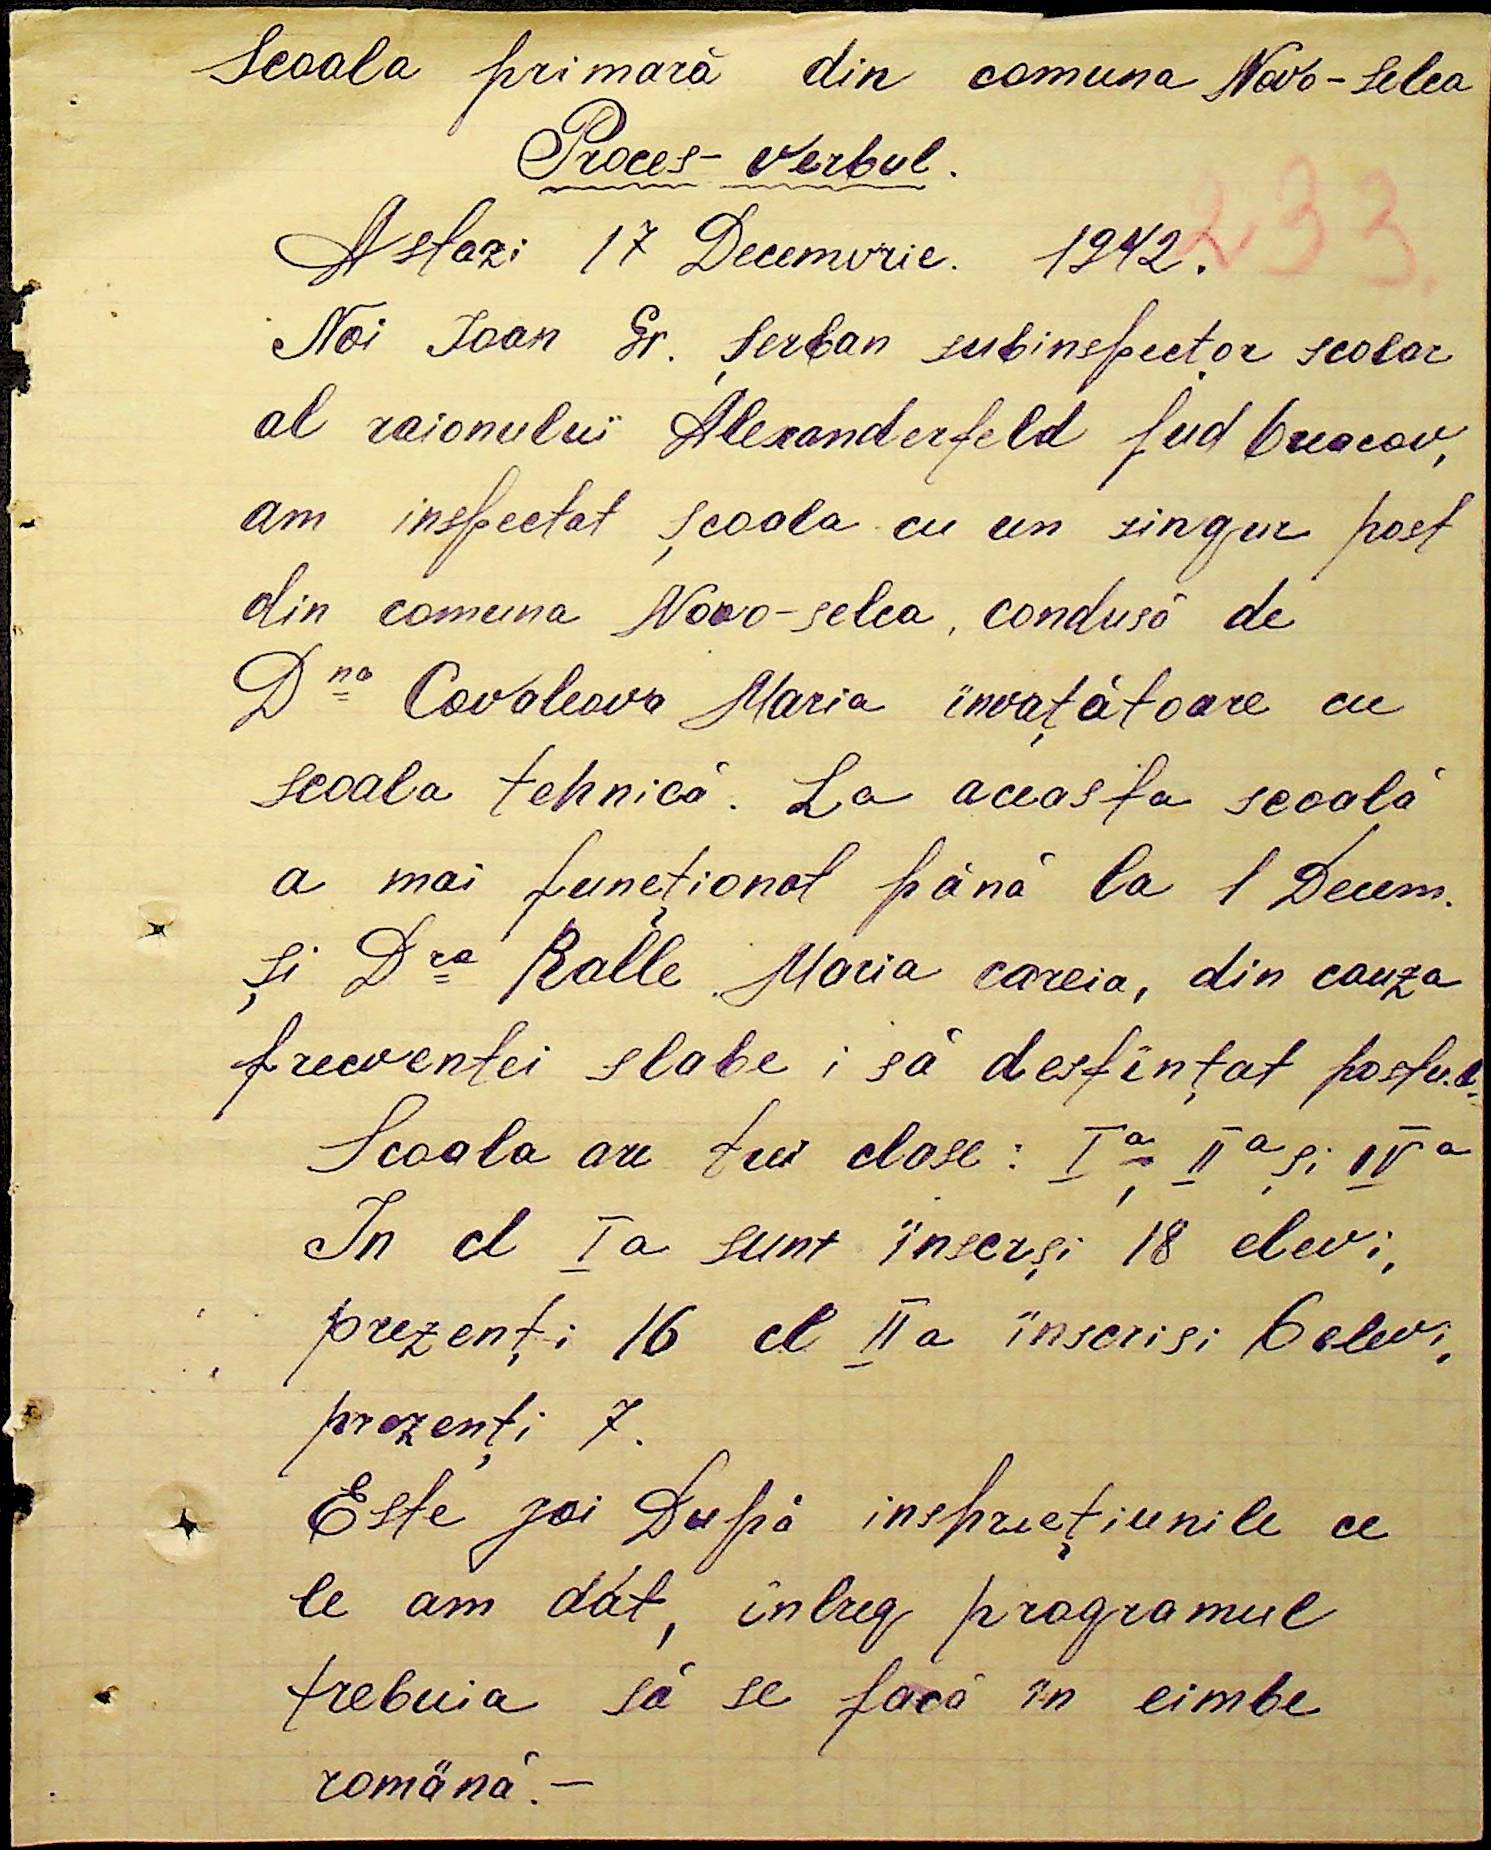 Scoala primară din comuna Novo-Selca
Proces-verbul.
233.
Astazi 17 Decemvrie. 1942.
Noi Ioan Gr. Șerban subinspecțor scolar
al raionului Alexanderfeld jud
am inspectat școala cu un singur post
din comuna Novo-selca, condusă de
Dna Covaleova Maria învațătoare cu
scoala tehnică. La aceasta scoală
a mai funcționat până la 1 Decem.
și Dra Ralle Maria careia, din cauza
frecventei slabe i să desfințat postul.
Scoala are trei clase: Ia, IIa și IVa
In cl Ia sunt înscrși 18 elevi,
prezenți 16 cl IIa înscrisi 6 elevi,
prezenți 7.
Este joi După insprucțiunile ce
le am dat, întreg programul
trebuia să se facă în eimbe
română.-